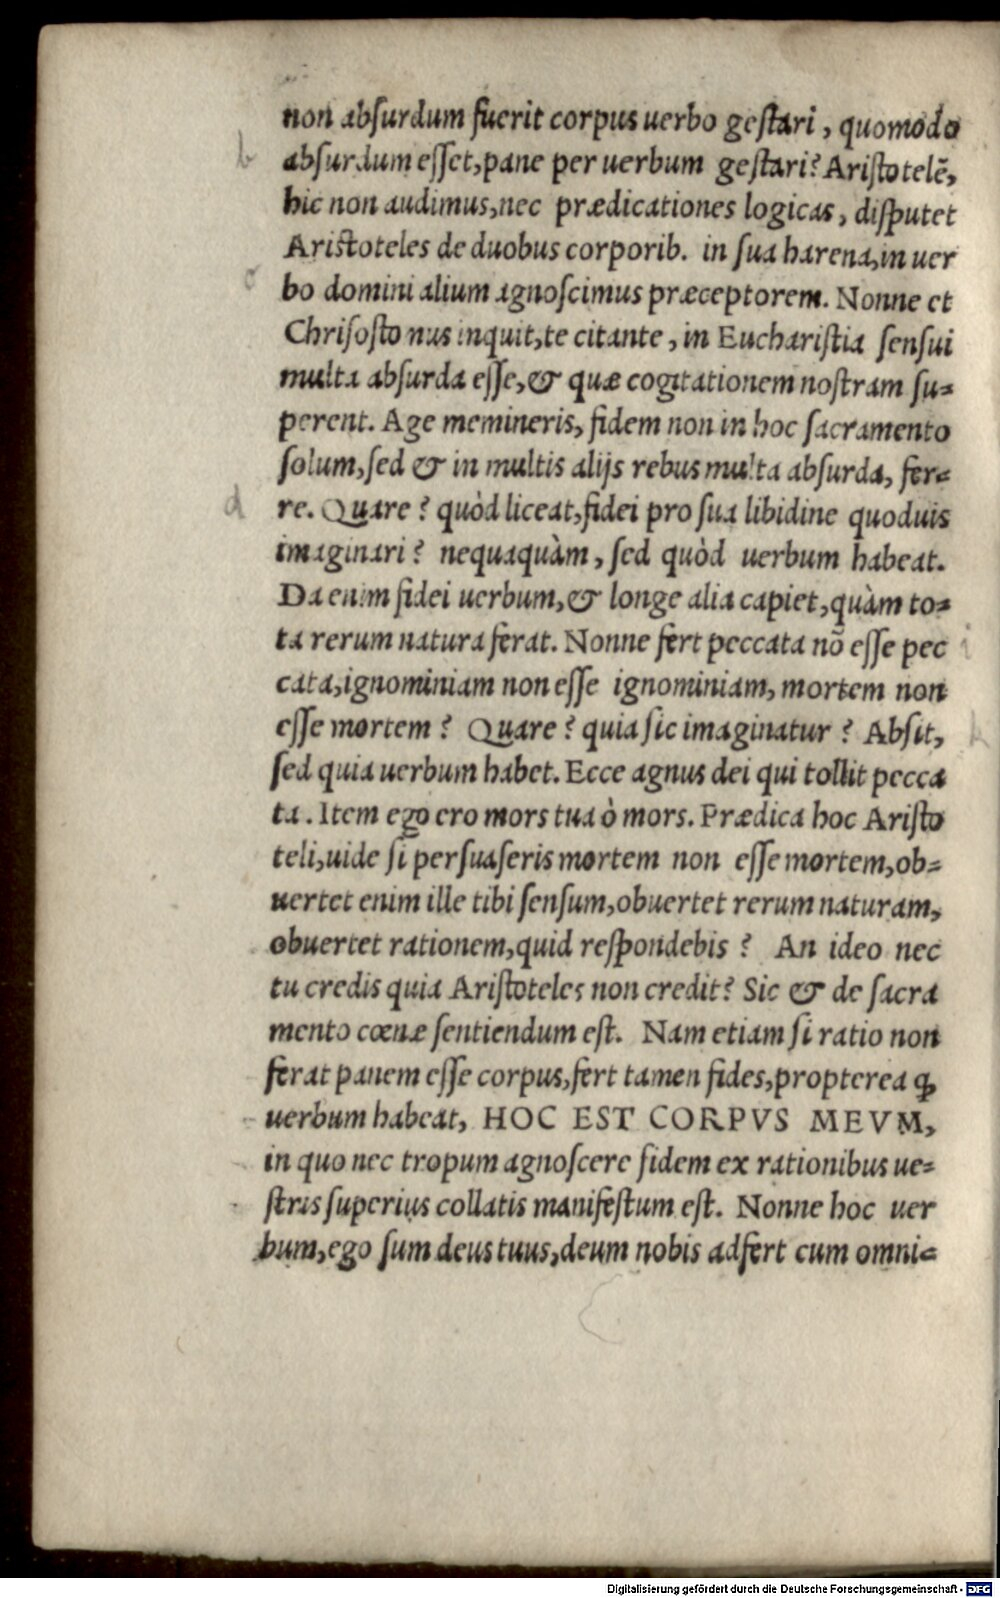 non absurdum fuerit corpus uerbo gestari, quomodo
absurdum esset, pane per uerbum gestari? Aristotelē,
hic non audimus, nec prædicationes logicas, disputet
Aristoteles de duobus corporib. in sua harena, in uer
bo domini alium agnoscimus præceptorem. Nonne et
Chrisostomus inquit, te citante, in Eucharistia sensui
multa absurda esse, & quæ cogitationem nostram su-
perent. Age memineris, fidem non in hoc sacramento
solum, sed & in multis alijs rebus multa absurda, fer-
re. Quare? quòd liceat, fidei pro sua libidine quoduis
imaginari? nequaquàm, sed quòd uerbum habeat.
Da enim fidei uerbum, & longe alia capiet, quàm to-
ta rerum natura ferat. Nonne fert peccata nō esse pec
cata, ignominiam non esse ignominiam, mortem non
esse mortem? Quare? quia sic imaginatur? Absit,
sed quia uerbum habet. Ecce agnus dei qui tollit pecca
ta. Item ego ero mors tua ò mors. Prædica hoc Aristo
teli, uide si persuaseris mortem non esse mortem, ob-
uertet enim ille tibi sensum, obuertet rerum naturam,
obuertet rationem, quid respondebis? An ideo nec
tu credis quia Aristoteles non credit? Sic & de sacra
mento cœnæ sentiendum est. Nam etiam si ratio non
ferat panem esse corpus, fert tamen fides, propterea ꝙ
uerbum habeat, HOC EST CORPVS MEVM,
in quo nec tropum agnoscere fidem ex rationibus ue-
stris superius collatis manifestum est. Nonne hoc uer
bum, ego sum deus tuus, deum nobis adfert cum omni-
b
c
d
i
k
Digitalisierung gefördert durch die Deutsche Forschungsgemeinschaft - DFG